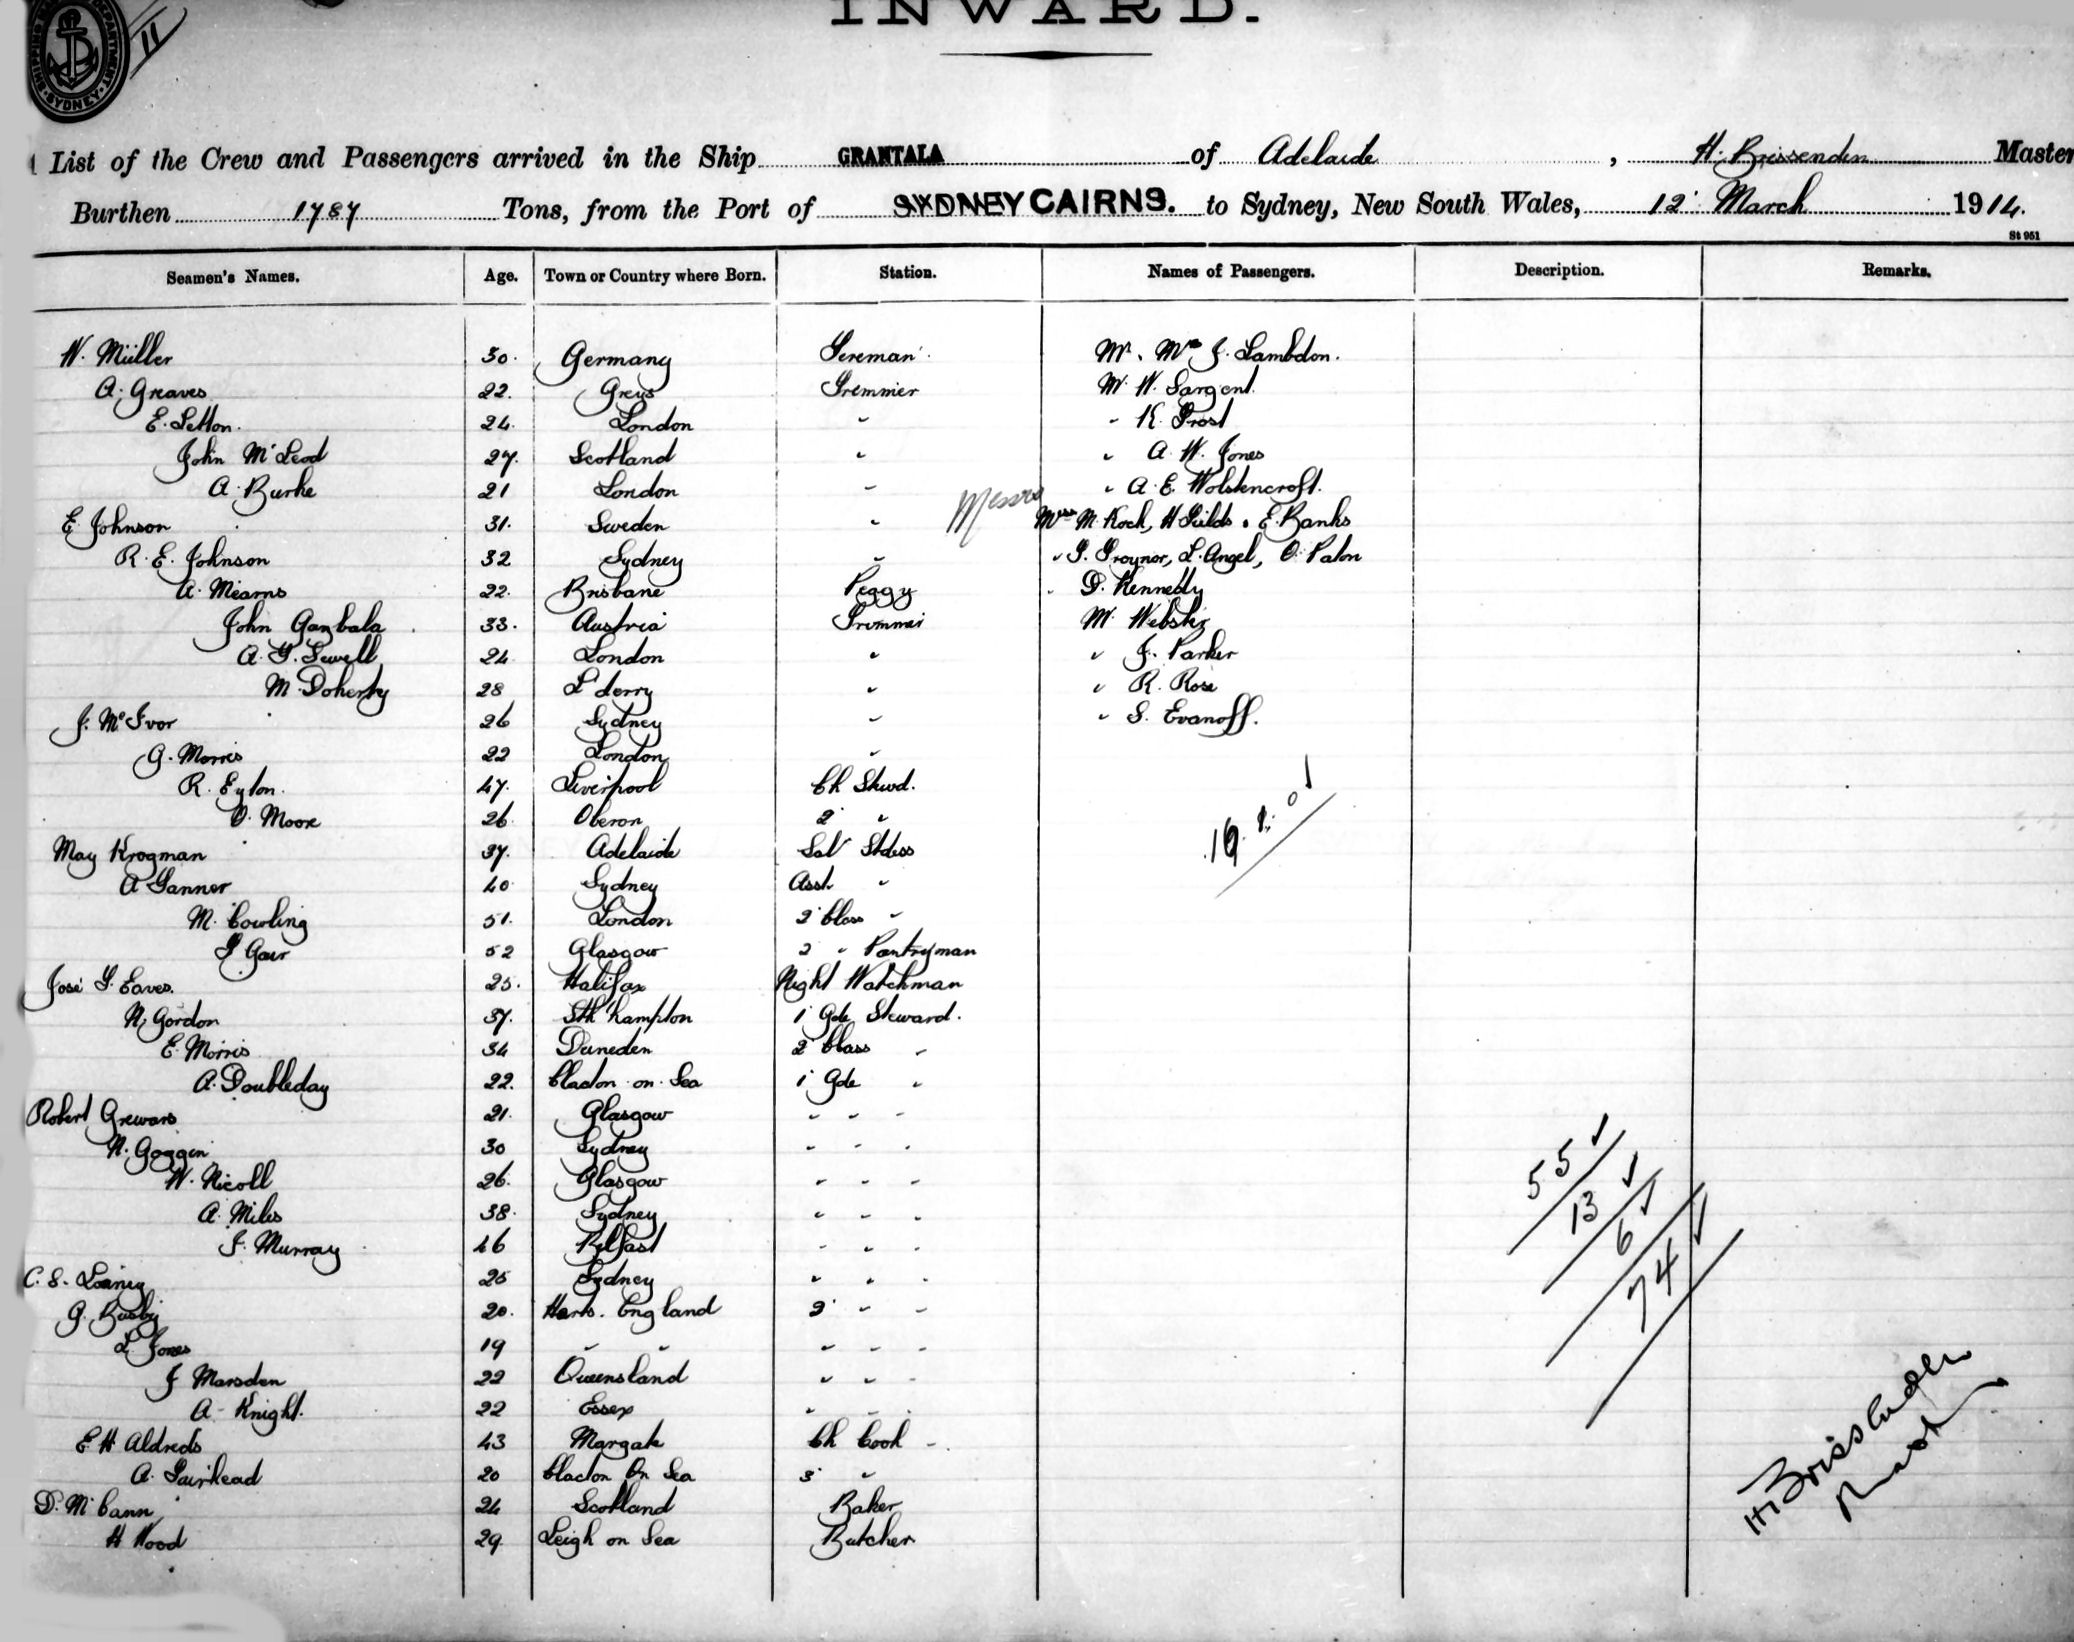 INWARD.
SHIPPING DEPARTMENT SYDNEY
11
List of the Crew and Passengers arrived in the Ship GRANTALA of Adelaide, H. Brissenden Master
Burthen 1787 Tons, from the Port of SYDNEY CAIRNS. to Sydney, New South Wales, 12 March 1914.
St 951
Seamen's Names. Age. Town or Country where Born. Station. Names of Passengers. Description. Remarks.
W. Müller 30. Germany Fireman. Mr. Mrs J. Lambdon.
A. Greaves 22. Trimmer Mr. W. Sargent.
E. Setton. 24. London " " K. Frost
John McLeod 27. Scotland " " A. W. Jones
A. Burke 21 London " " A. E. Wolstencroft.
Messrs
E. Johnson 31. Sweden " M. Koch, H Fields. E. Banks
R. E. Johnson 32 Sydney " " Traynor, L. Angel, O. Paton
A. Mearns 22. Brisbane Peggy " D. Kennedy
John Gambala 33. Austria Trimmer Mr. Webster
A. G. Sewell 24 London " " J. Parker
M. Doherty 28 L'derry " " R. Rose
J. McIvor 26 Sydney " " S. Evanoff.
G. Morris 22 London "
R. Eyton. 47. Liverpool Ch Stewd.
O. Moore 26. Oberon 2 "
May Krogman 37. Adelaide Sal Stdess
A Tanner 40 Sydney Asst. "
M. Cowling 51. London 2 Class "
Gair 52 Glasgow 2 " Pantryman
Eaves. 25. Halifax Night Watchman
N. Gordon 37. Sth hampton 1 Gde Steward.
E. Morris 34 Duneden 2 Class "
A. Doubleday 22. Clacton on Sea 1 Gde "
Robert Grewars 21. Glasgow " " "
N. Goggin 30 Sydney " " "
W. Nicoll 26. Glasgow " " "
A. Miles 38. Sydney " " "
J. Murray 46 Belfast " " "
C. S. 25 Sydney " " "
G. Busby 20. Herts. England 2 " "
L Jones 19 " " " " "
J Marsden 22 Queensland " " "
A. Knight. 22 Essex " " "
E H Aldreds 43 Margate Ch Cook
A. Fairhead 20 Clacton On Sea 3 "
D. McCann 24 Scotland Baker
H Wood 29. Leigh on Sea Butcher
55
13
6
74
H Brissenden
Master